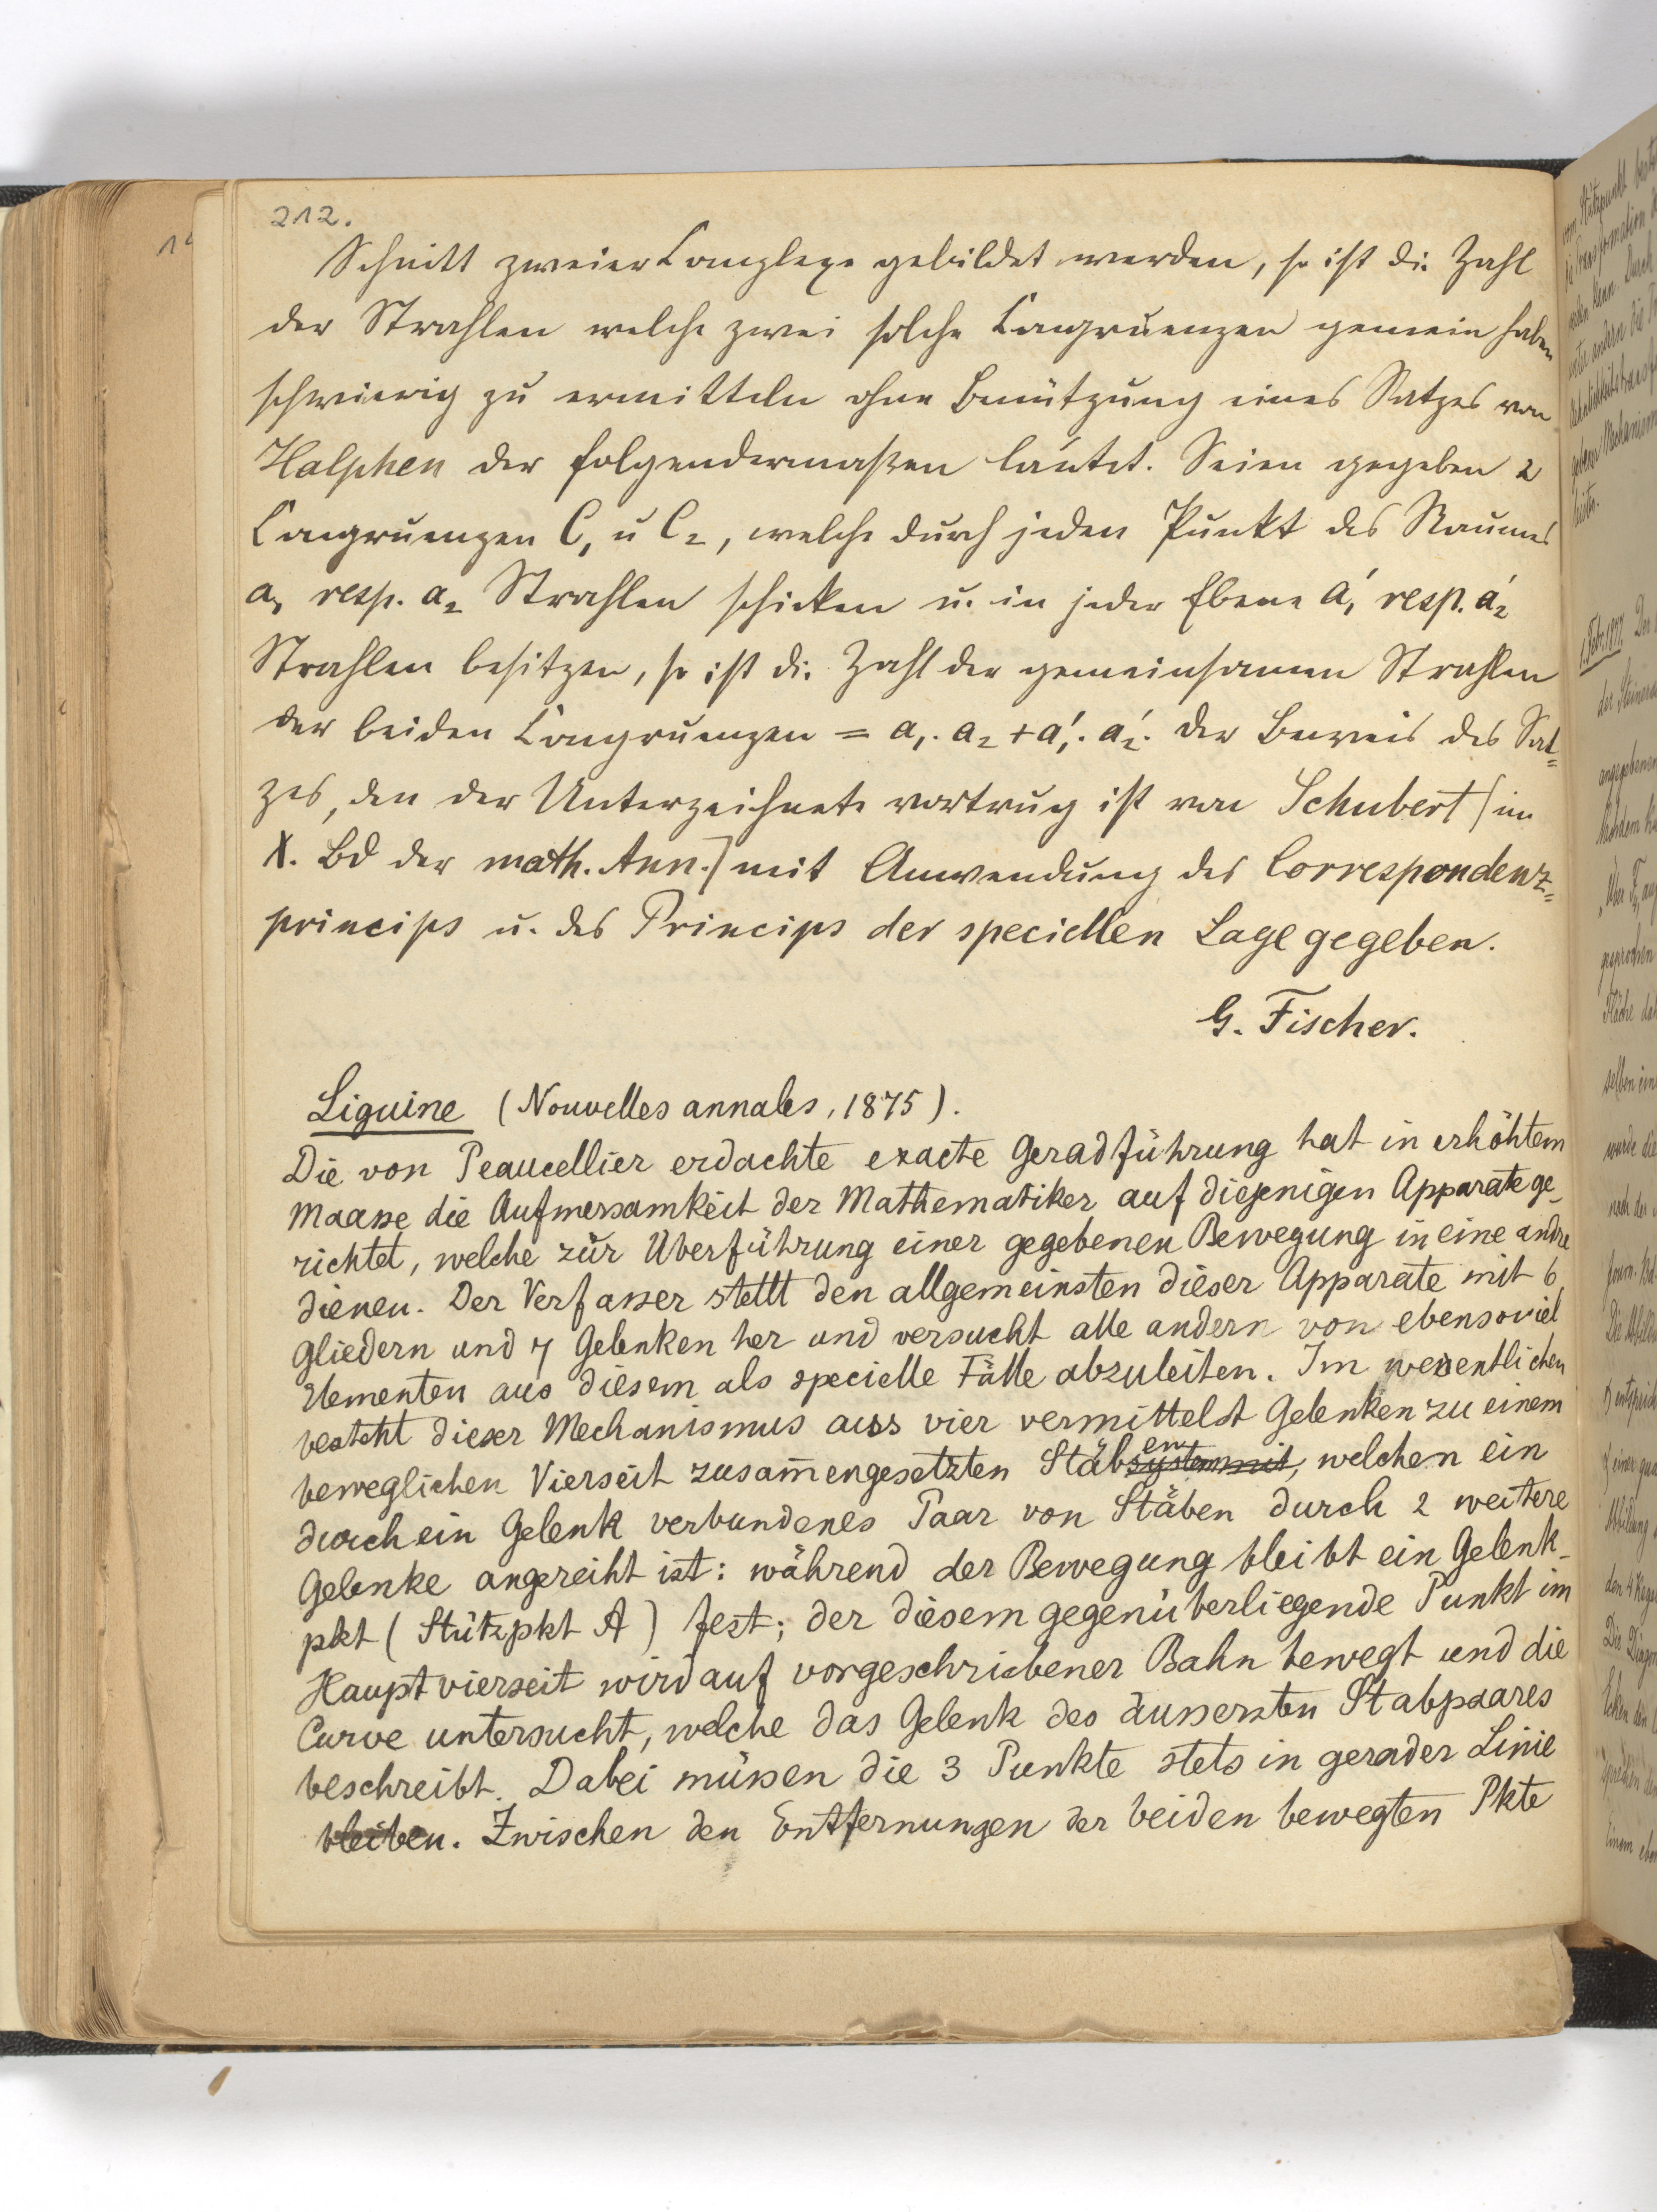 212.
Schnitt zweier Complexe gebildet werden, so ist die Zahl
der Strahlen welche zwei solche Congruenzen gemein haben
schwierig zu ermitteln ohne Benützung eines Satzes von
Halphen der folgendermaßen lautet. Seien gegeben 2
Congruenzen C₁ u C₂, welche durch jeden Punkt des Raumes
a₁ resp. a₂ Strahlen schicken u. in jeder Ebene a₁' resp. a₂'
Strahlen besitzen, so ist die Zahl der gemeinsamen Strahlen
der beiden Congruenzen = a₁. a₂ + a₁'. a₂'. Der Beweis des Sat=
zes, den der Unterzeichnete vortrug ist von Schubert (im
X. Bd der math. Ann.) mit Anwendung des Correspondenz=
princips u. des Princips der speciellen Lage gegeben.
G. Fischer.
Liguine (Nouvelles annales, 1875).
Die von Peaucellier erdachte exacte Geradführung hat in erhöhtem
Maasse die Aufmersamkeit der Mathematiker auf diejenigen Apparate ge-
richtet, welche zur Überführung einer gegebenen Bewegung in eine andre
dienen. Der Verfasser stellt den allgemeinsten dieser Apparate mit 6
Gliedern und 7 Gelenken her und versucht alle andern von ebensoviel
Elementen aus diesem als specielle Fälle abzuleiten. Im wesentlichen
besteht dieser Mechanismus aus vier vermittelst Gelenken zu einem
beweglichen Vierseit zusam̄engesetzten Stäben systemmit, welchem ein
durch ein Gelenk verbundenes Paar von Stäben durch 2 weitere
Gelenke angereiht ist: während der Bewegung bleibt ein Gelenk-
pkt (Stützpkt A) fest; der diesem gegenüberliegende Punkt im
Hauptvierseit wird auf vorgeschriebener Bahn bewegt und die
Curve untersucht, welche das Gelenk des äussersten Stabpaares
beschreibt. Dabei müssen die 3 Punkte stets in gerader Linie
bleiben. Zwischen den Entfernungen der beiden bewegten Pkte